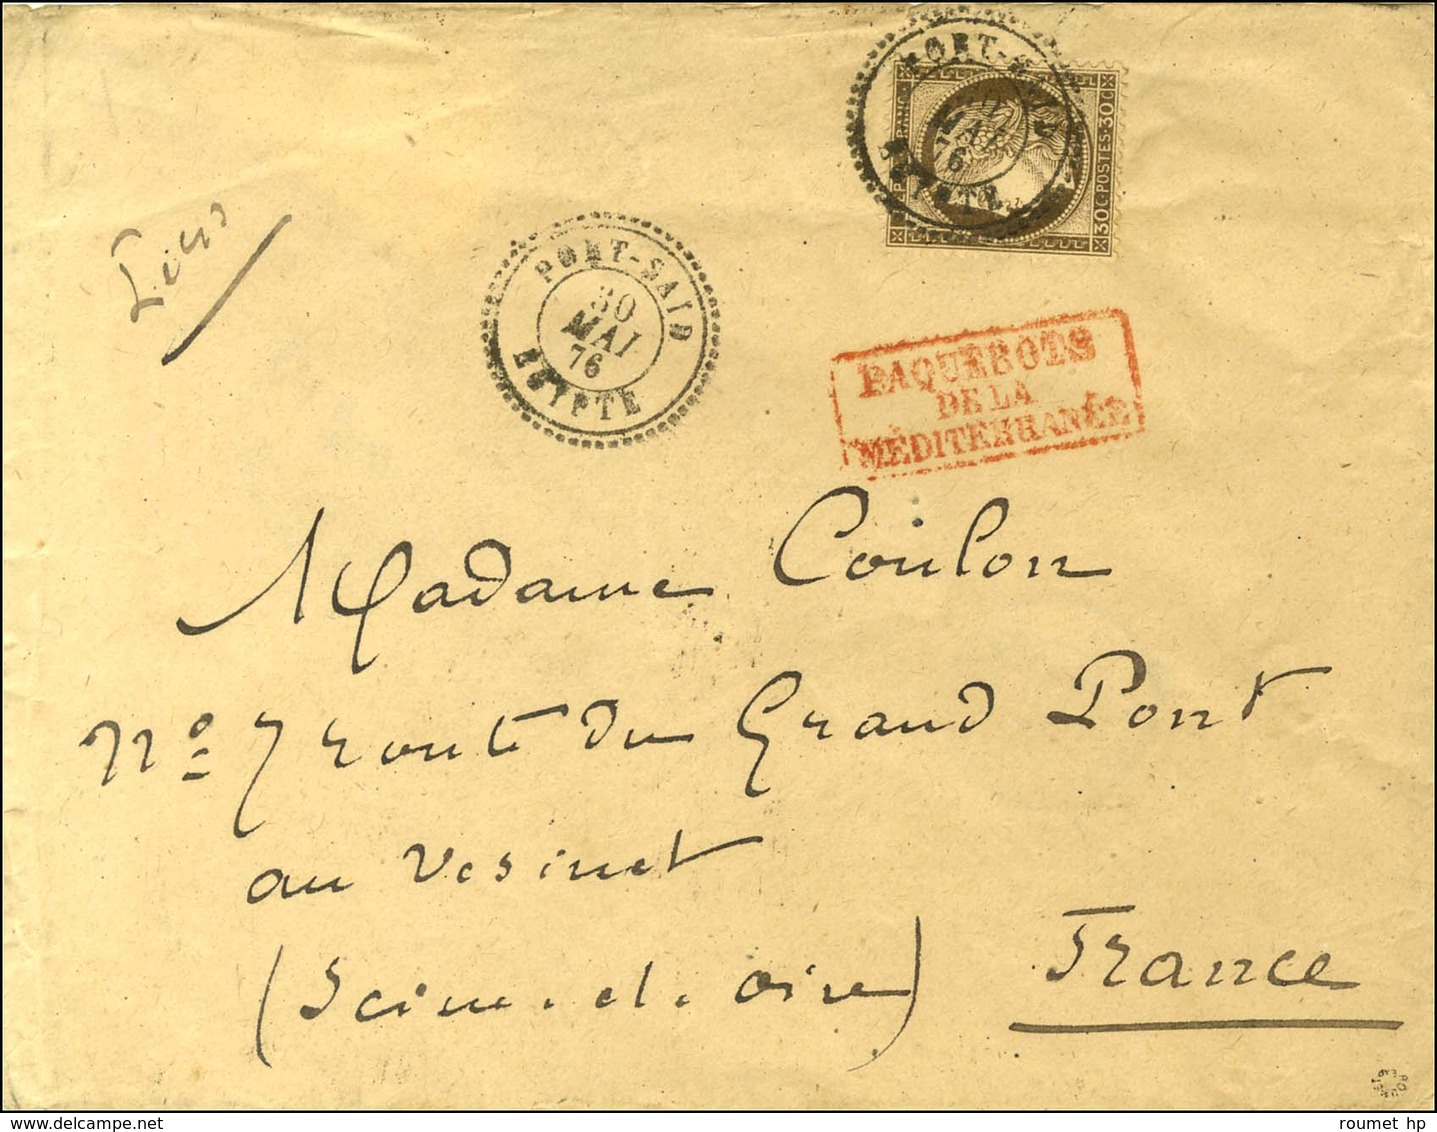 PORT-SAID
MAI
76
EGYPTE
30C·POSTES·30C
PORT-SAID
30
MAI
76
EGYPTE
PAQUEBOTS
DE LA
MÉDITERRANÉE
Madame Coulon
Nº 7 route du Grand Pont
au Vesinet
(Seine.et.oise) France
roumet hp